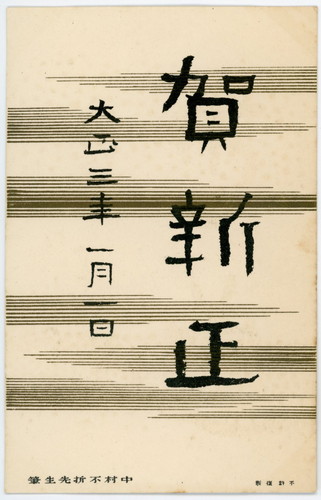 賀新正
大正三年一月一日
中村不折先生筆